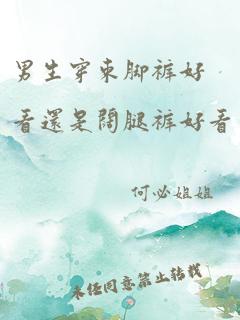 男生穿束脚裤好
看還是闊腿裤好看
何必姐姐
未经同意禁止转载